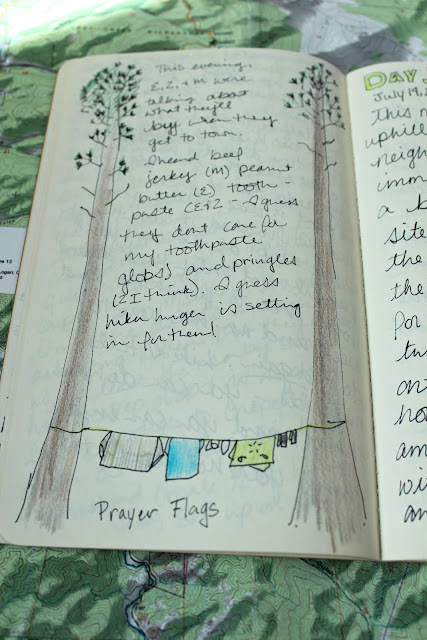 This evening.
E, Z, + M were
talking about
what they'll
buy when they
get to town.
I heard beef
jerky (M) peanut
butter (E) tooth-
paste (E+Z - I guess
they don't care for
my toothpaste
globs) and pringles
(Z I think). I guess
hiker hunger is setting
in for them!
Prayer Flags
DAY
July 19, 2
This m
uphill
neigh
imm
a b
site
the
the
For
tw
on
ho
am
wi
an